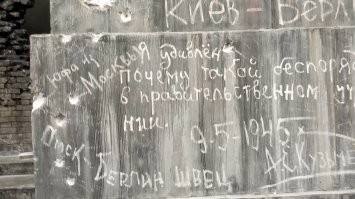 Киев-Берл
Юфа из
Москвы
Я удивлён
Почему такой беспоря
в правительственном уч
нии.
9-5-1945
Омск-Берлин Швец
А.С.Кузьм